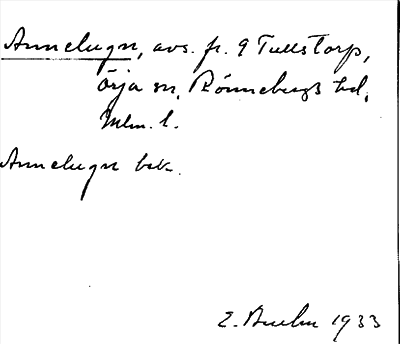 Annelugn, avs. fr. 9 Tullstorp,
Örja sn, Rönnebergs hd,
Mlm. l.
Annelugn bek.
1933